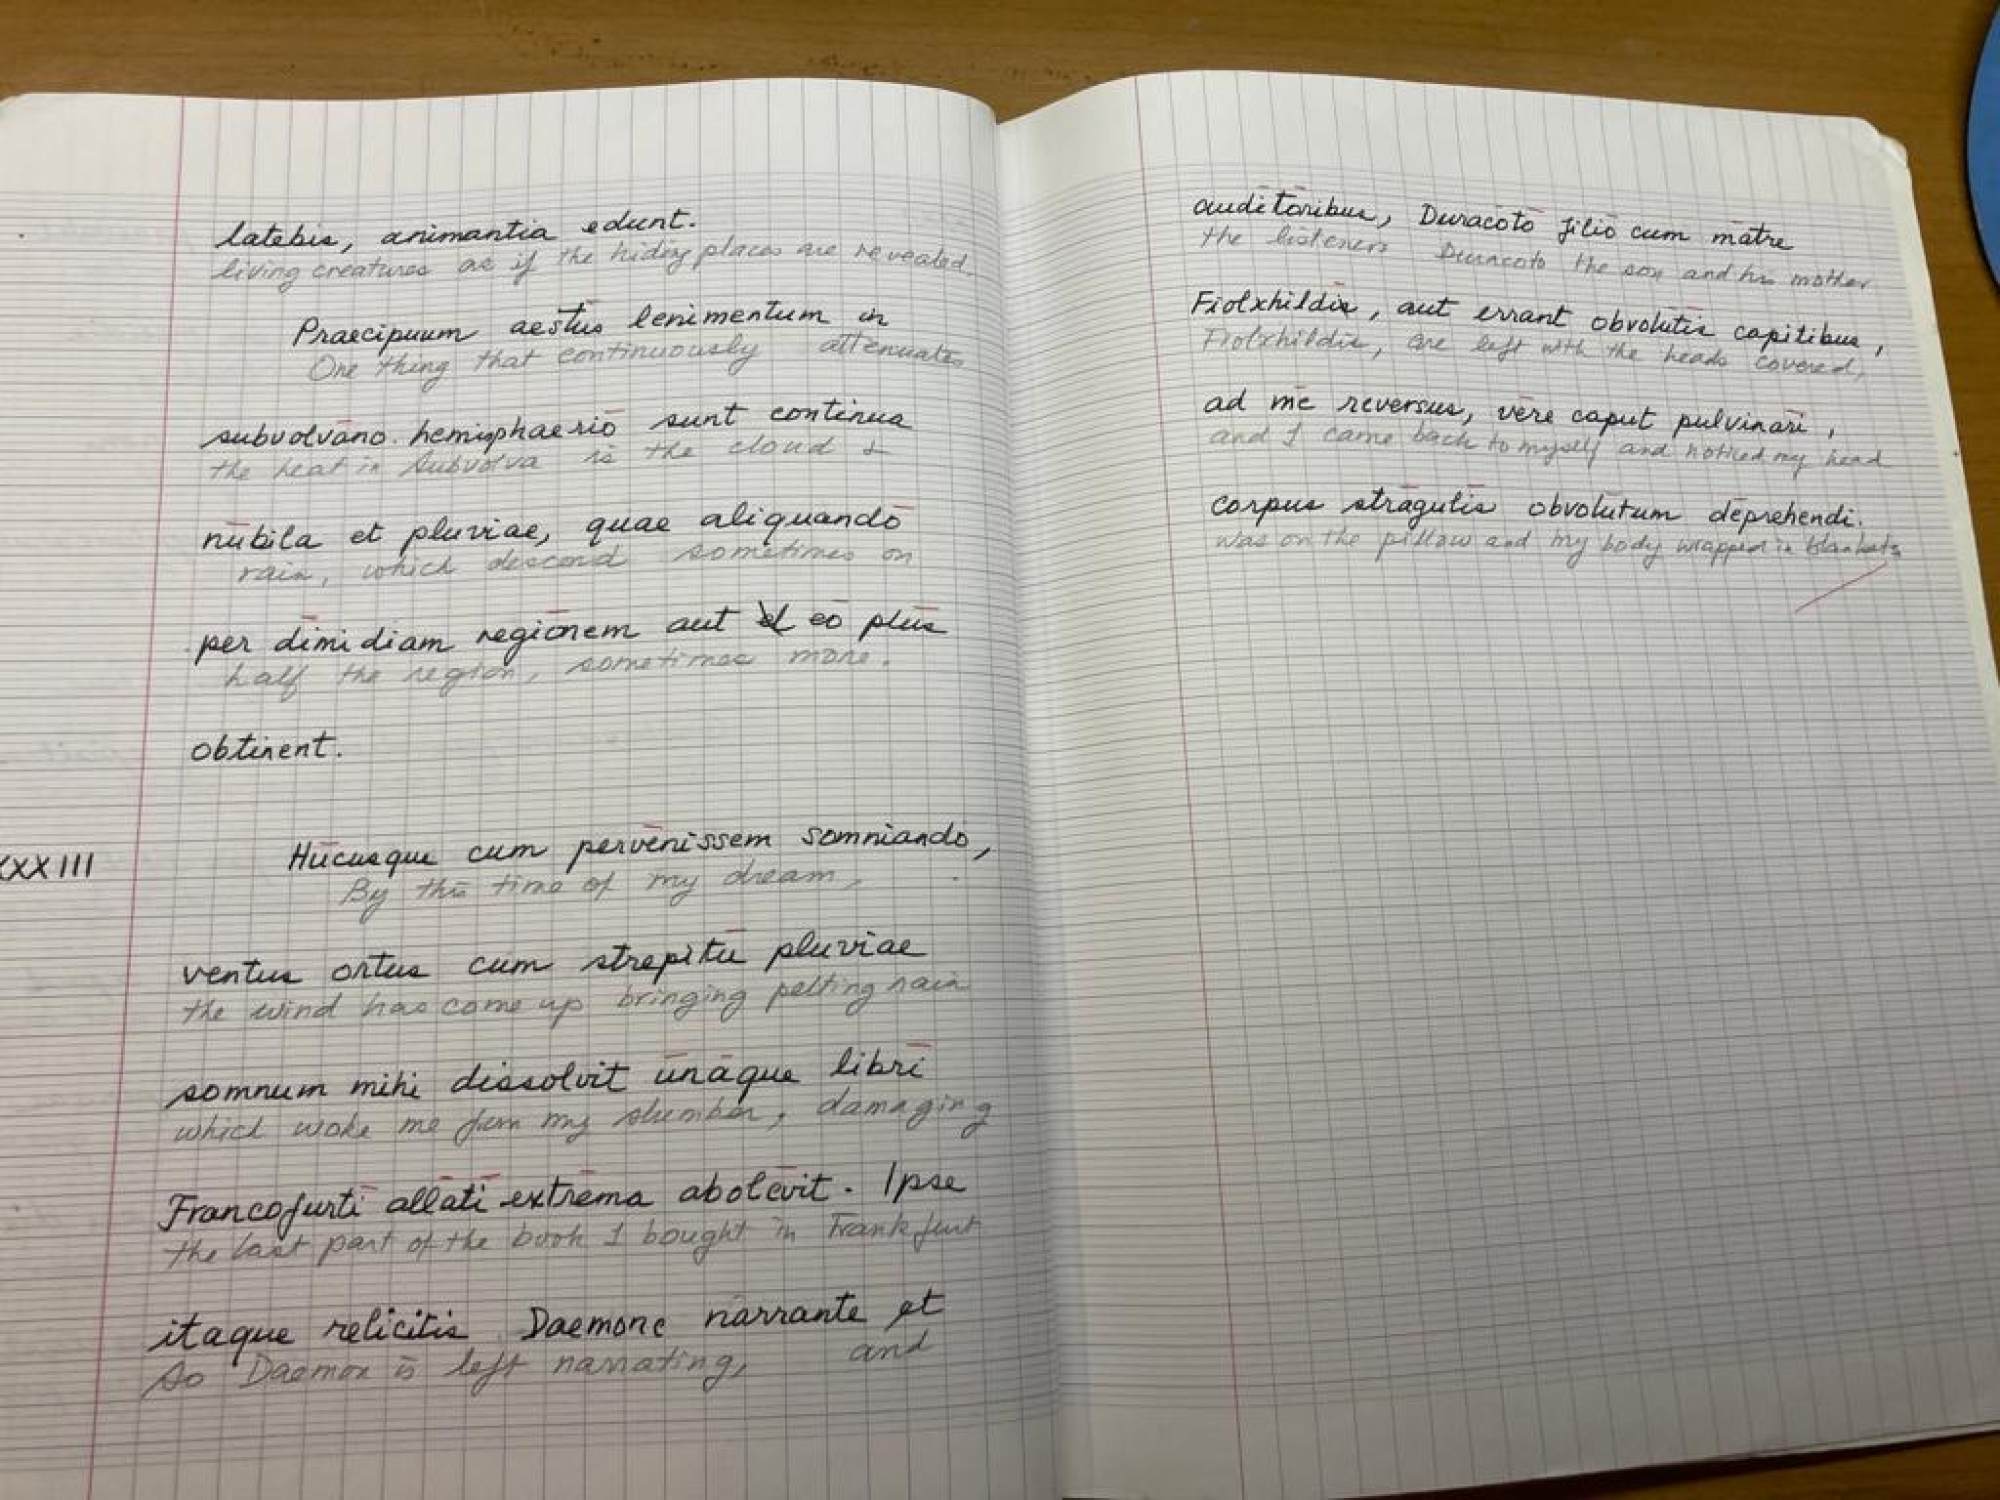 latebis, animantia edunt.
living creatures as if the hiding places are revealed.
Praecipuum aestūs lenimentum in
One thing that continuously attenuates
subvolvāno hemisphaeriō sunt continua
the heat in Subvolva is the cloud &
nūbila et pluviae, quae aliquandō
rain, which descend sometimes on
per dīmidiam regiōnem aut eō plūs
half the region, sometimes more.
obtinent.
XXXIII
Hūcusque cum pervēnissem somniando,
By this time of my dream,
ventus ortus cum strepitū pluviae
the wind has come up bringing pelting rain
somnum mihi dissolvit ūnāque librī
which woke me from my slumber, damaging
Francofurtī allātī extrēma abolēvit. Ipse
the last part of the book I bought in Frankfurt
itaque relicitis Daemone nārrante et
So Daemon is left narrating, and
audītōribus, Duracotō filiō cum mātre
the listeners Duracoto the son and his mother
Fiolxhildis, aut errant obvolūtīs capitibus,
Fiolxhildis, are left with the heads covered,
ad mē reversus, vērē caput pulvinārī,
and I came back to myself and noticed my head
corpus strāgulīs obvolūtum dēprehendi.
was on the pillow and my body wrapped in blankets